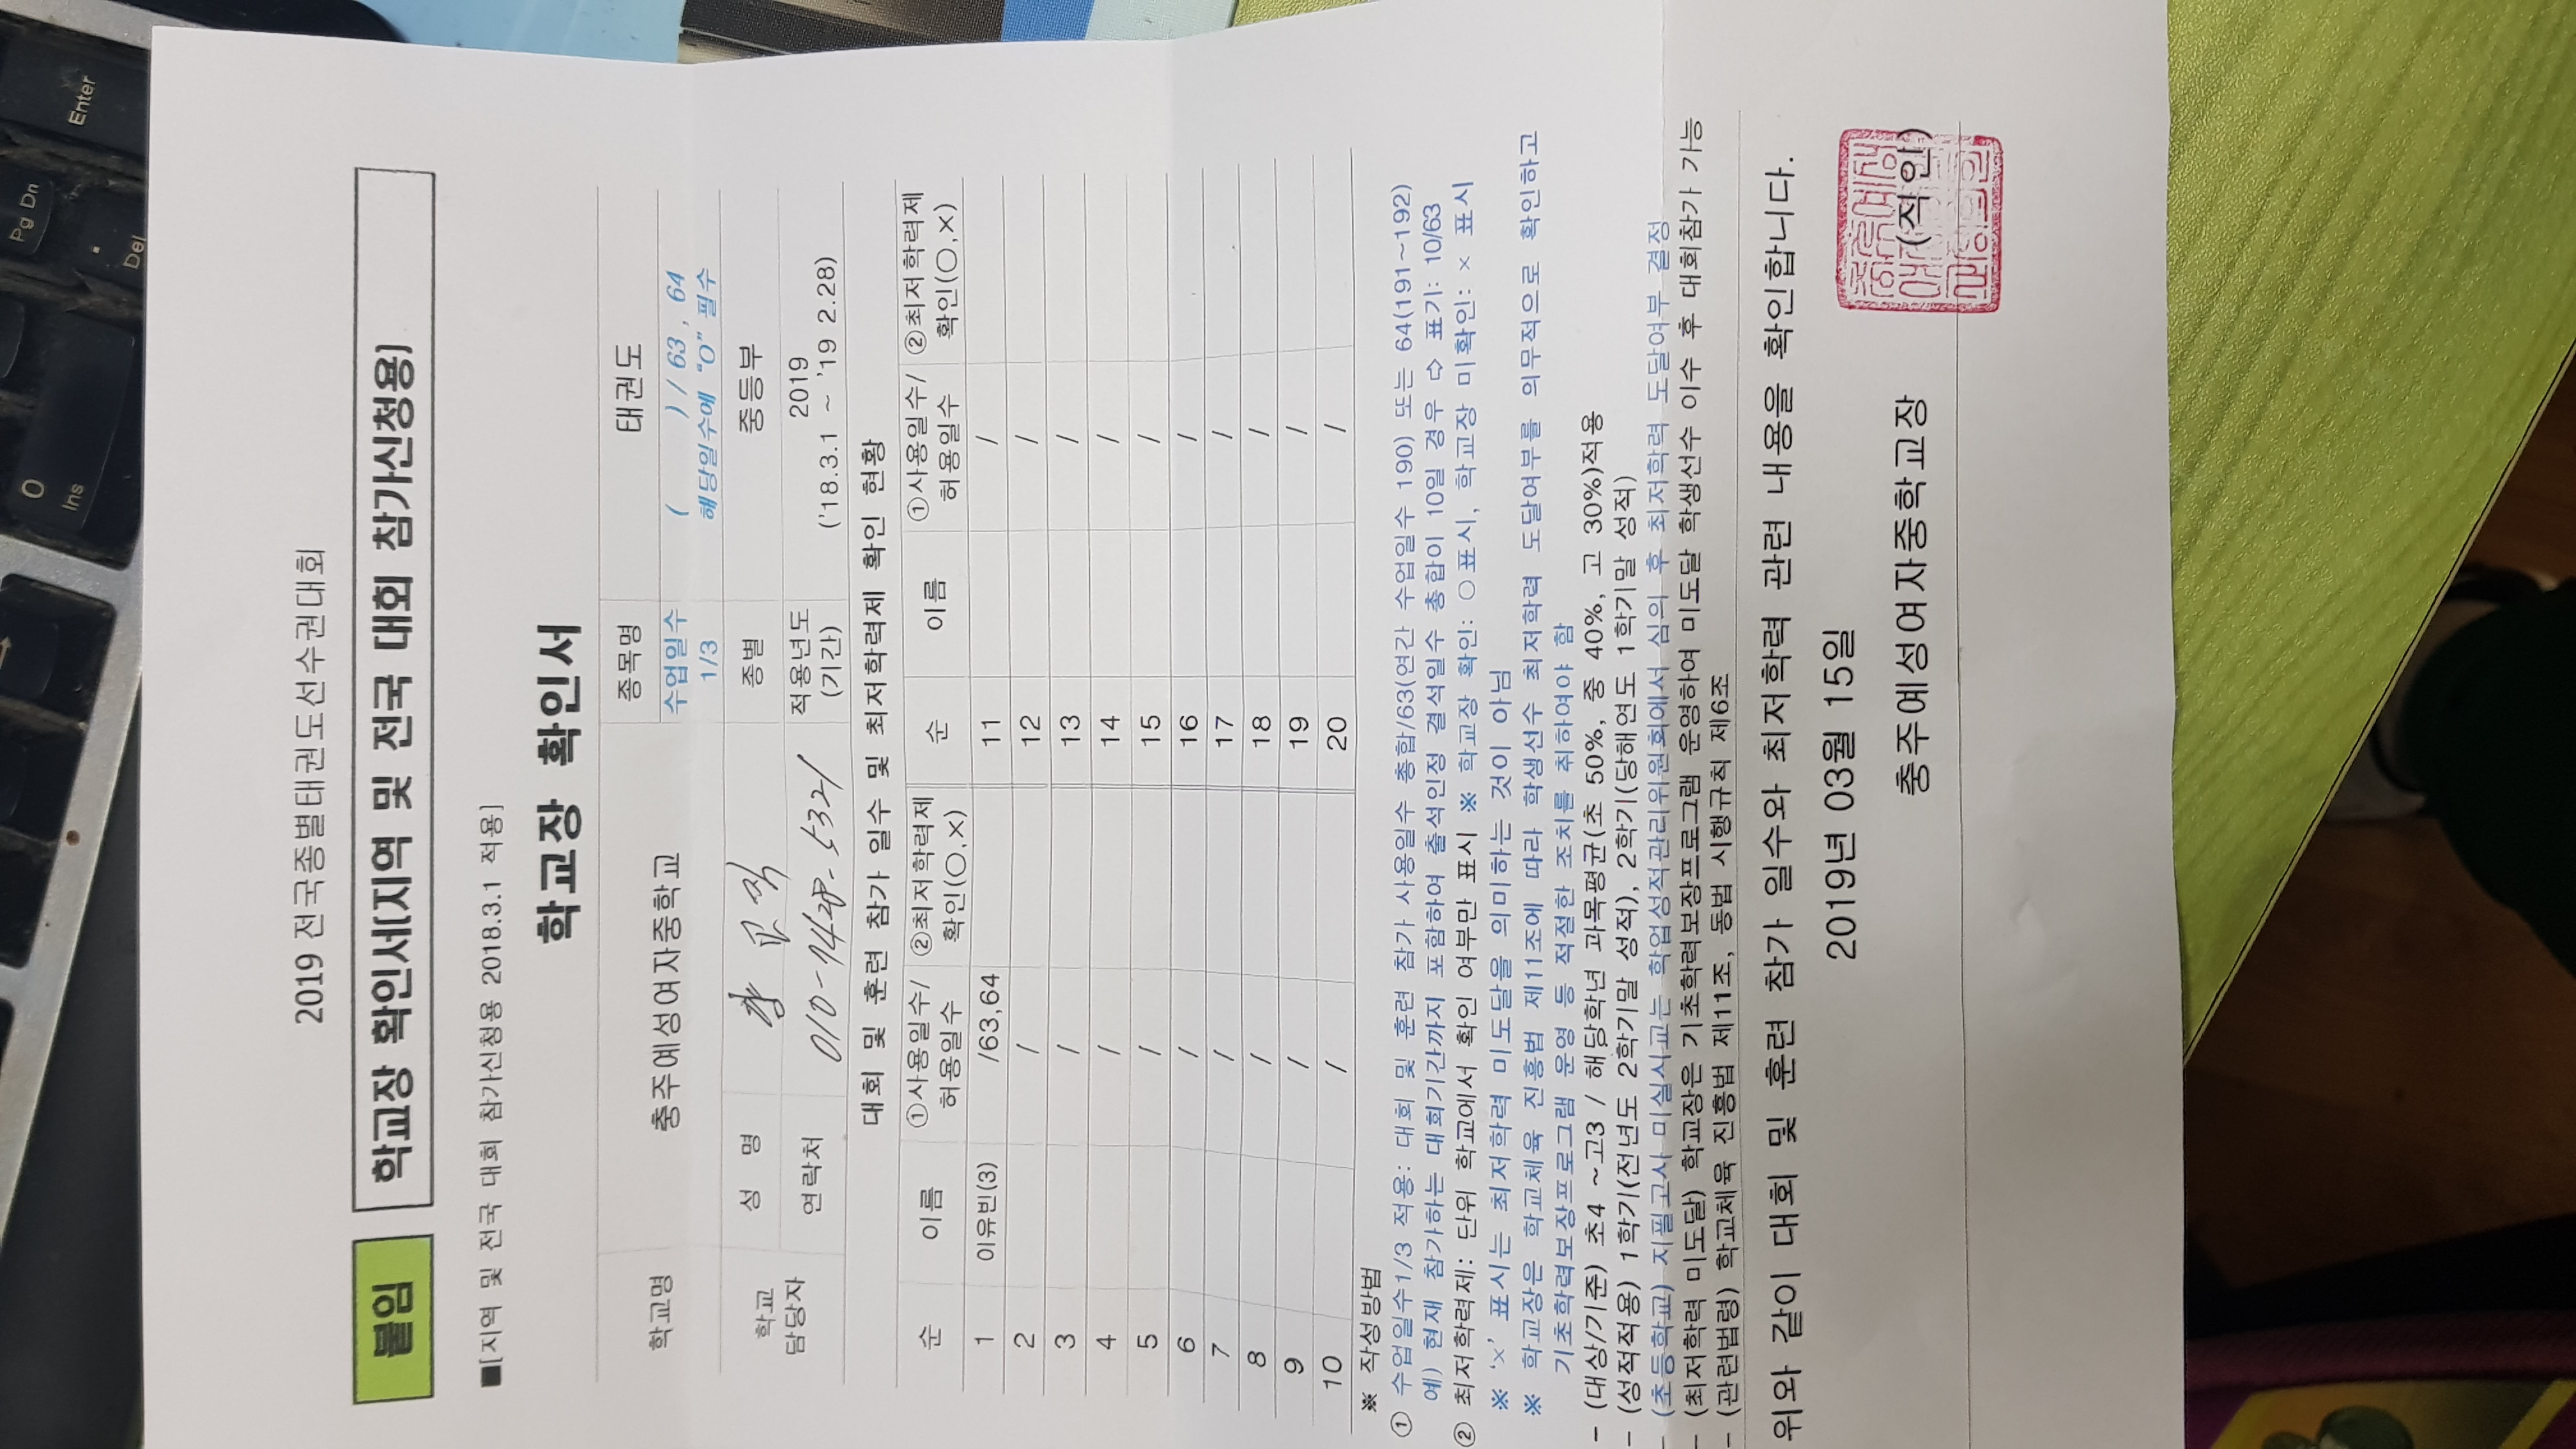 2019 전국종별태권도선수권대회
붙임 학교장 확인서(지역 및 전국 대회 참가신청용)
■[지역 및 전국 대회 참가신청용 2018.3.1 적용]
학교장 확인서
학교명 충주예성여자중학교 종목명 태권도
수업일수 1/3 ( ) / 63 , 64
해당일수에 "O" 필수
학교 담당자 성 명 종별 중등부
연락처 적용년도 (기간) 2019
('18.3.1 ~ '19 2.28)
대회 및 훈련 참가 일수 및 최저학력제 확인 현황
순 이름 ①사용일수/허용일수 ②최저학력제 확인(○,×) 순 이름 ①사용일수/허용일수 ②최저학력제 확인(○,×)
1 이유빈(3) /63,64 11 /
2 / 12 /
3 / 13 /
4 / 14 /
5 / 15 /
6 / 16 /
7 / 17 /
8 / 18 /
9 / 19 /
10 / 20 /
※ 작성방법
① 수업일수1/3 적용: 대회 및 훈련 참가 사용일수 총합/63(연간 수업일수 190) 또는 64(191~192)
예) 현재 참가하는 대회기간까지 포함하여 출석인정 결석일수 총합이 10일 경우 ⇨ 표기: 10/63
② 최저학력제: 단위 학교에서 확인 여부만 표시 ※ 학교장 확인: ○ 표시, 학교장 미확인: × 표시
※ '×' 표시는 최저학력 미도달을 의미하는 것이 아님
※ 학교장은 학교체육 진흥법 제11조에 따라 학생선수 최저학력 도달여부를 의무적으로 확인하고
기초학력보장프로그램 운영 등 적절한 조치를 취하여야 함
- (대상/기준) 초4 ~고3 / 해당학년 과목평균(초 50%, 중 40%, 고 30%)적용
- (성적적용) 1학기(전년도 2학기말 성적), 2학기(당해연도 1학기말 성적)
- (초등학교) 지필고사 미실시교는 학업성적관리위원회에서 심의 후 최저학력 도달여부 결정
- (최저학력 미도달) 학교장은 기초학력보장프로그램 운영하여 미도달 학생선수 이수 후 대회참가 가능
- (관련법령) 학교체육 진흥법 제11조, 동법 시행규칙 제6조
위와 같이 대회 및 훈련 참가 일수와 최저학력 관련 내용을 확인합니다.
2019년 03월 15일
충주예성여자중학교장 (직인)
Enter
Pg Dn
.
Del
0
Ins